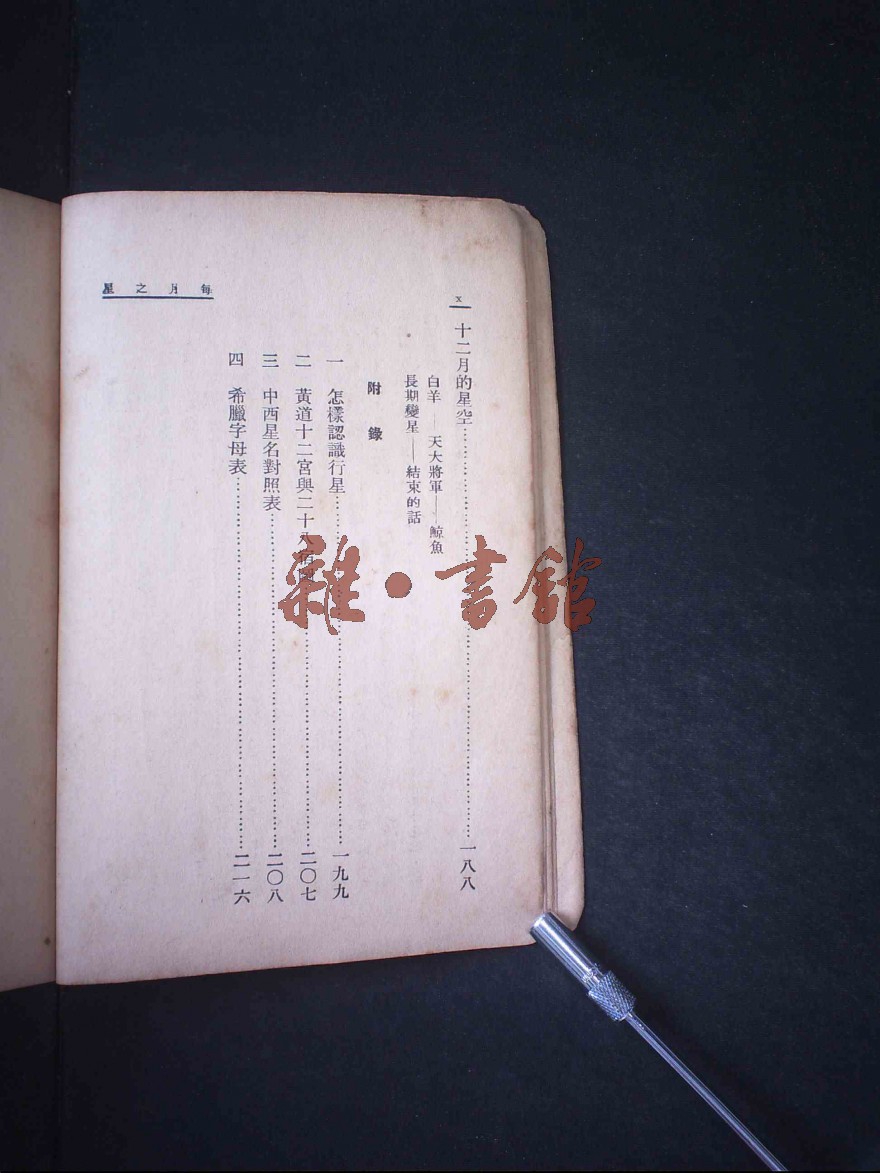 每月之星
x
十二月的星空……188
白羊——天大將軍——鯨魚
長期變星——結束的話
附錄
一 怎樣認識行星……一九九
二 黃道十二宮與二十八宿……二〇七
三 中西星名對照表……二〇八
四 希臘字母表……二一六
雜·書館